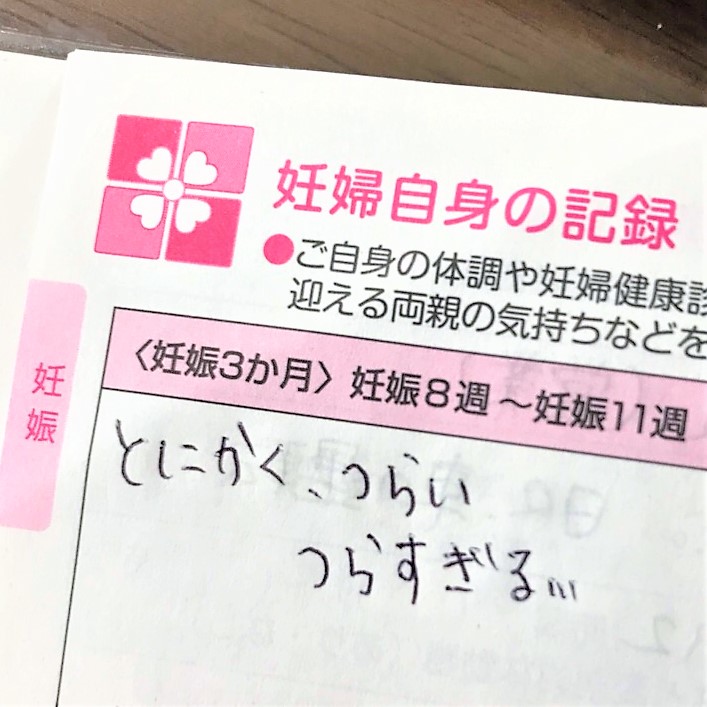 妊婦自身の記録
●ご自身の体調や妊婦健康診
迎える両親の気持ちなどを
妊娠
〈妊娠3か月〉妊娠8週〜妊娠11週
とにかく、つらい
つらすぎる…